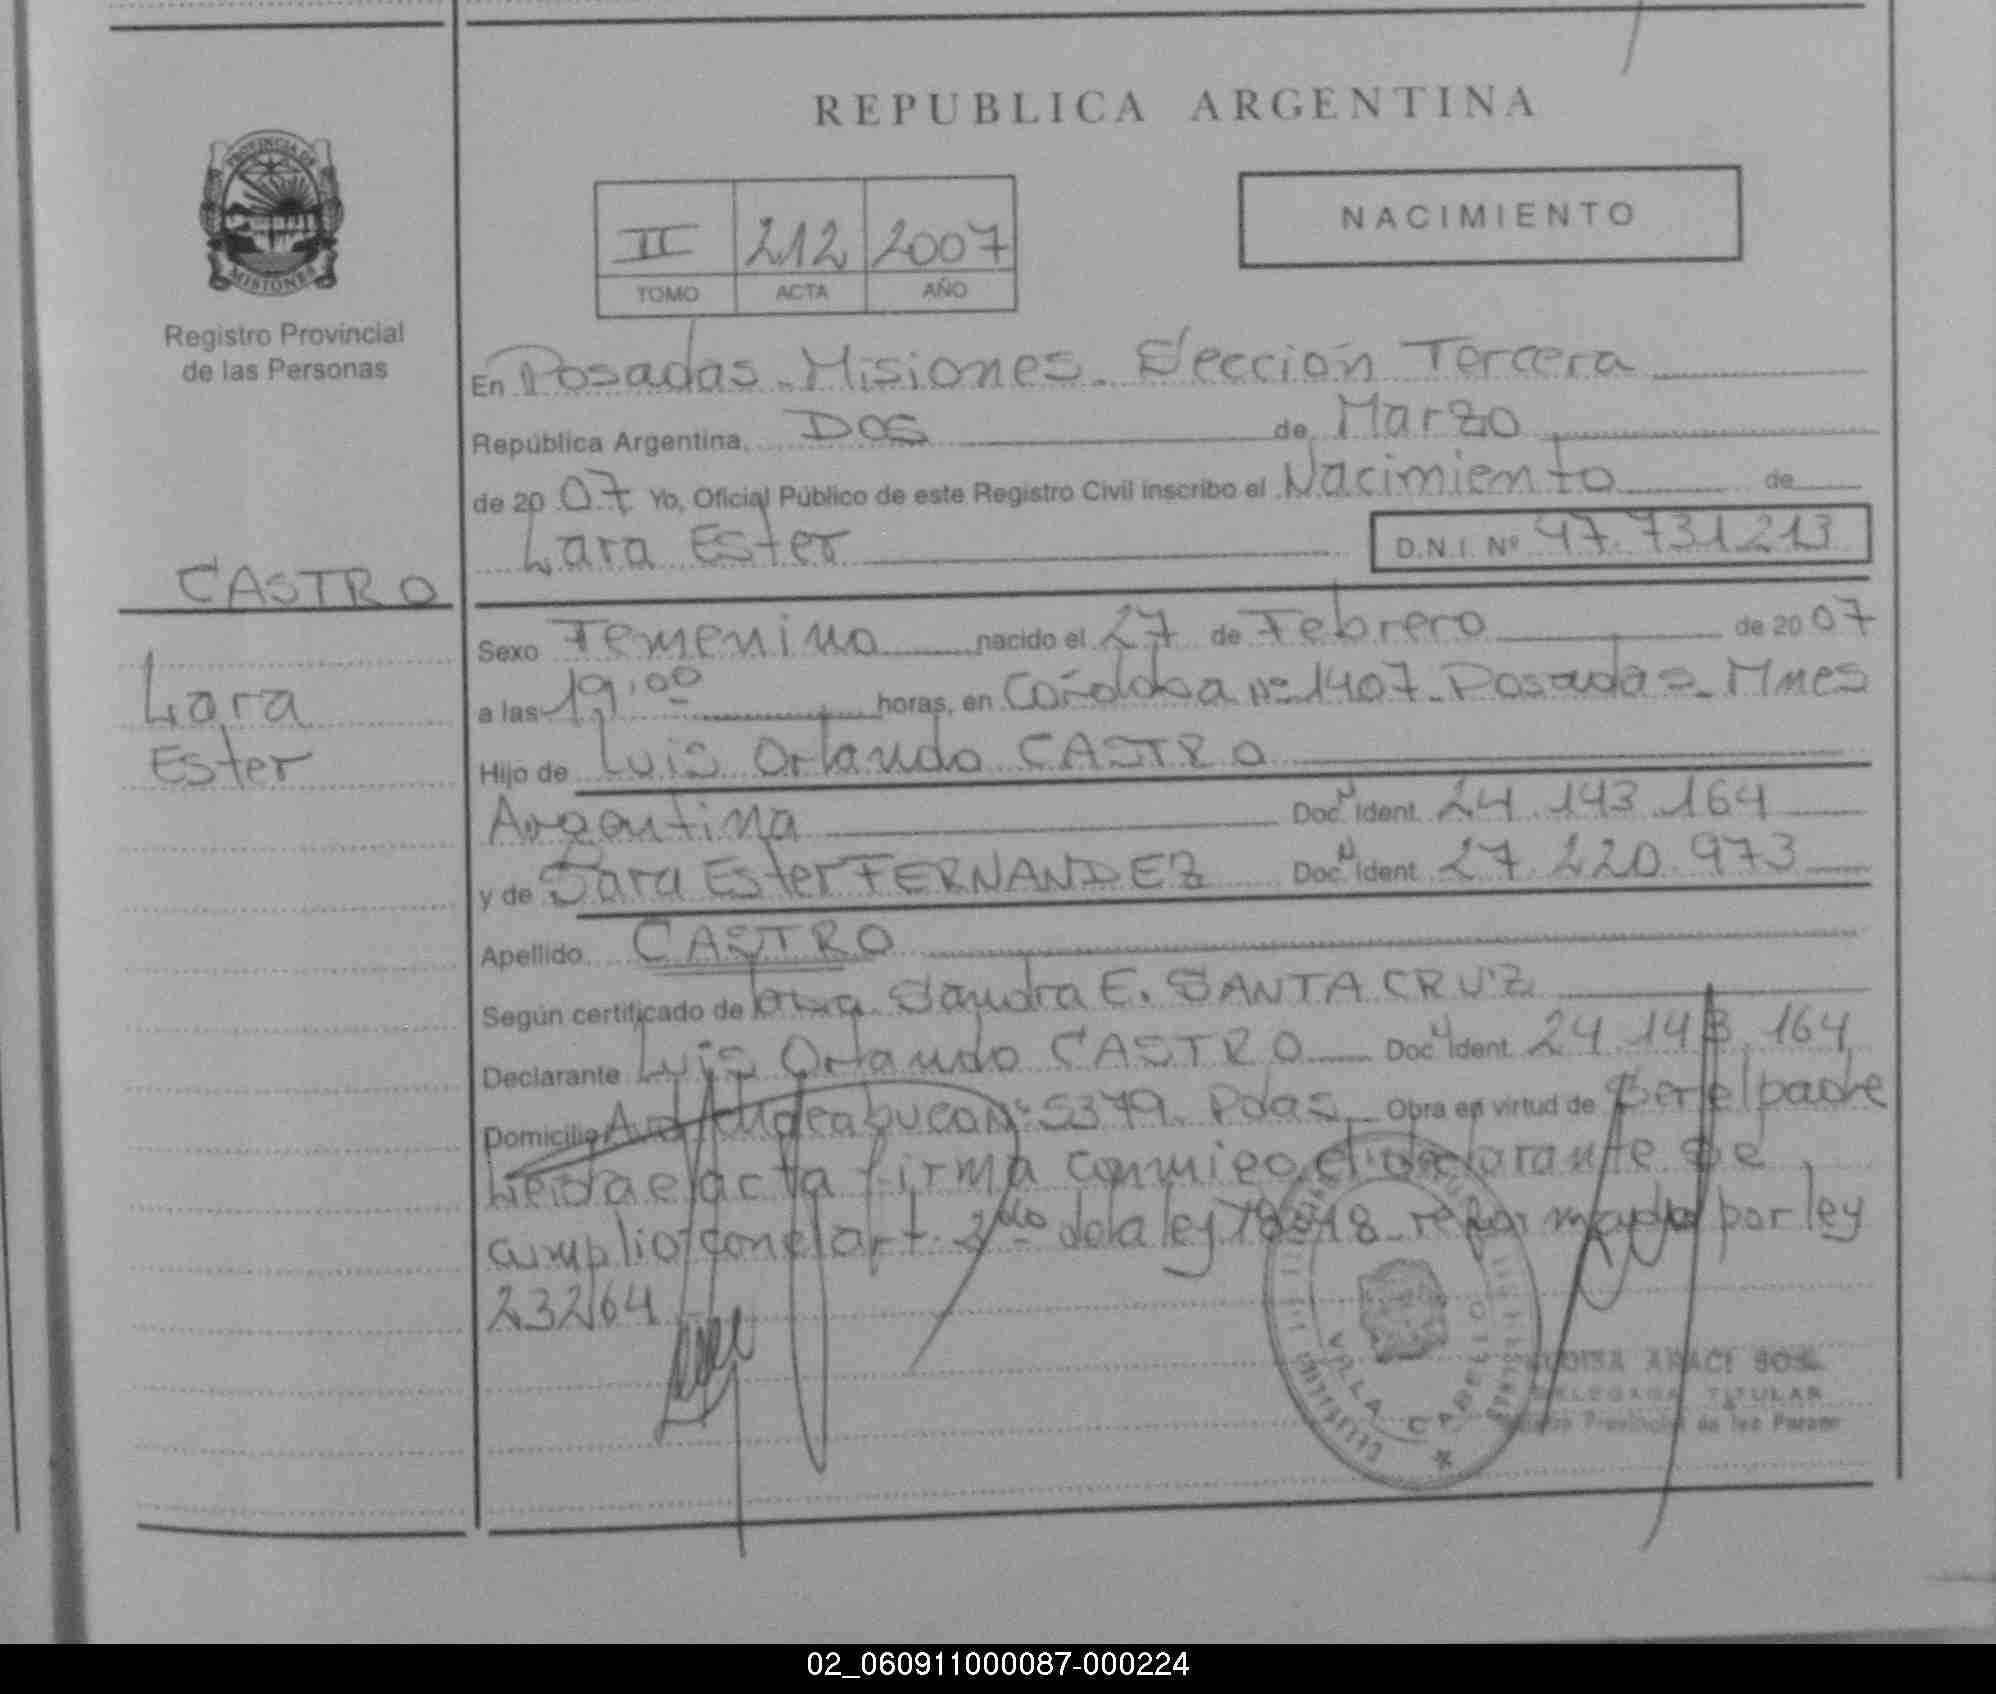 REPUBLICA ARGENTINA
PROVINCIA DE
MISIONES
Registro Provincial
de las Personas
NACIMIENTO
II 212 2007
TOMO ACTA AÑO
En Posadas - Misiones - Sección Tercera
República Argentina, DOS de Marzo
de 20 07 Yo, Oficial Público de este Registro Civil inscribo el Nacimiento de
Lara Ester D.N.I. Nº 47.731213
CASTRO
Lara
Ester
Sexo Femenino nacido el 27 de Febrero de 20 07
a las 19:00 horas, en Córdoba Nº 1407 - Posadas - Mnes
Hijo de Luis Orlando CASTRO
Argentina Doc N Ident. 24.143.164
y de Sara Ester FERNANDEZ Doc N Ident. 27.220.973
Apellido CASTRO
Según certificado de Sandra E. SANTA CRUZ
Declarante Luis Orlando CASTRO Doc N Ident. 24.143.164
Domicilio Nº 5379 - Pdas Obra en virtud de Ser el padre
Leida el acta firma conmigo el declarante se
cumplio con el art. 2do de la ley 18248 reformado por ley
23264
VILLA CABELLO
ARACI
DELEGADA TITULAR
Provincial de las Person
02_060911000087-000224